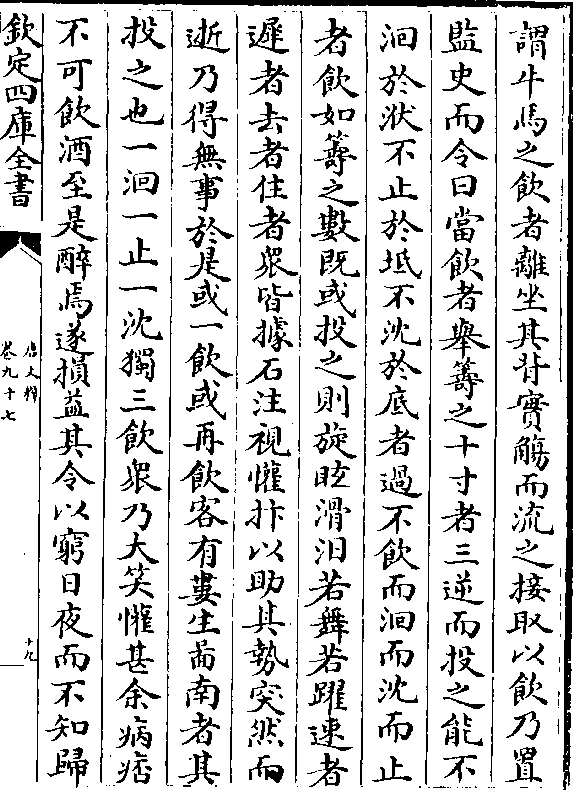 謂牛馬之飲者離坐其背實觴而流之接取以飲乃置
監史而令曰當飲者舉籌之十寸者三逆而投之能不
洄於洑不止於坻不沈於底者過不飲而洄而沈而止
者飲如籌之數既或投之則旋眩滑汨若舞若躍速者
遲者去者住者衆皆據石注視懽抃以助其勢突然而
逝乃得無事於是或一飲或再飲客有婁生啚南者其
投之也一洄一止一沈獨三飲衆乃大笑懽甚余病痞
不可飲酒至是醉焉遂損益其令以窮日夜而不知歸
欽定四庫全書
唐文粹
卷九十七
十九